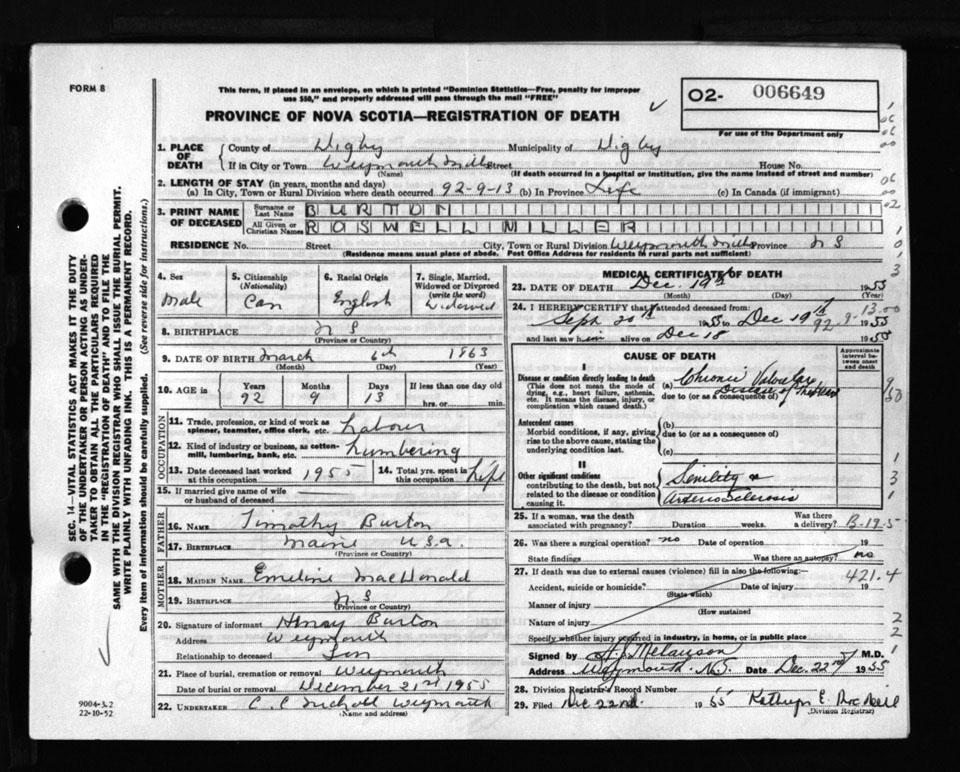 FORM 8
This form, if placed in an envelope, on which is printed "Dominion Statistics—Free, penalty for improper
use $50," and properly addressed will pass through the mail "FREE"
PROVINCE OF NOVA SCOTIA—REGISTRATION OF DEATH
02- 006649
For use of the Department only
SEC. 14—VITAL STATISTICS ACT MAKES IT THE DUTY
OF THE UNDERTAKER OR PERSON ACTING AS UNDER-
TAKER TO OBTAIN ALL THE PARTICULARS REQUIRED
IN THE "REGISTRATION OF DEATH" AND TO FILE THE
SAME WITH THE DIVISION REGISTRAR WHO SHALL ISSUE THE BURIAL PERMIT.
WRITE PLAINLY WITH UNFADING INK. THIS IS A PERMANENT RECORD.
Every item of information should be carefully supplied. (See reverse side for instructions.)
1. PLACE OF DEATH
County of Digby Municipality of Digby
If in City or Town Weymouth Mills Street House No.
(Name) (If death occurred in a hospital or institution, give the name instead of street and number)
2. LENGTH OF STAY (in years, months and days)
(a) In City, Town or Rural Division where death occurred 92-9-13 (b) In Province Life (c) In Canada (if immigrant)
3. PRINT NAME OF DECEASED
Surname or Last Name BURTON
All Given or Christian Names ROSWELL MILLER
RESIDENCE No. Street City, Town or Rural Division Weymouth Mills Province N S
(Residence means usual place of abode. Post Office Address for residents in rural parts not sufficient)
4. Sex Male
5. Citizenship (Nationality) Can
6. Racial Origin English
7. Single, Married, Widowed or Divorced (write the word) Widowed
8. BIRTHPLACE N S
(Province or Country)
9. DATE OF BIRTH March 6th 1863
(Month) (Day) (Year)
10. AGE in Years 92 Months 9 Days 13 If less than one day old hrs. or min.
OCCUPATION
11. Trade, profession, or kind of work as spinner, teamster, office clerk, etc. Labour
12. Kind of industry or business, as cotton-mill, lumbering, bank, etc. Lumbering
13. Date deceased last worked at this occupation 1955
14. Total yrs. spent in this occupation Life
15. If married give name of wife or husband of deceased
FATHER
16. NAME Timothy Burton
17. BIRTHPLACE Maine U.S.A.
(Province or Country)
MOTHER
18. MAIDEN NAME Emeline MacDonald
19. BIRTHPLACE N S
(Province or Country)
20. Signature of informant Henry Burton
Address Weymouth
Relationship to deceased Son
21. Place of burial, cremation or removal Weymouth
Date of burial or removal December 21st 1955
22. UNDERTAKER C. C. Nicholl Weymouth
(Name and address)
9004-3.2
22-10-52
MEDICAL CERTIFICATE OF DEATH
23. DATE OF DEATH Dec. 19th 1955
(Month) (Day) (Year)
24. I HEREBY CERTIFY that I attended deceased from:
Sept 20th 1955 to Dec 19th 1955
92. 9-13.00
and last saw him alive on Dec 18 1955
CAUSE OF DEATH
Approximate interval between onset and death
I
Disease or condition directly leading to death
(This does not mean the mode of dying, e.g., heart failure, asthenia, etc. It means the disease, injury, or complication which caused death.)
(a) Chronic Valvular Disease of the Heart
due to (or as a consequence of)
Antecedent causes
Morbid conditions, if any, giving rise to the above cause, stating the underlying condition last.
(b)
due to (or as a consequence of)
(c)
II
Other significant conditions
contributing to the death, but not related to the disease or condition causing it.
Senility &
Arterio Sclerosis
25. If a woman, was the death associated with pregnancy? Duration weeks. Was there a delivery? B-19-5
26. Was there a surgical operation? no Date of operation 19
State findings Was there an autopsy? no
27. If death was due to external causes (violence) fill in also the following:
421.4
Accident, suicide or homicide? Date of injury 19
(State which)
Manner of injury
(How sustained)
Nature of injury
Specify whether injury occurred in industry, in home, or in public place
Signed by M.D.
Address Weymouth N.S. Date Dec. 22nd 1955
28. Division Registrar's Record Number
29. Filed Dec 22nd 1955 Kathryn E. MacNeill
(Division Registrar)